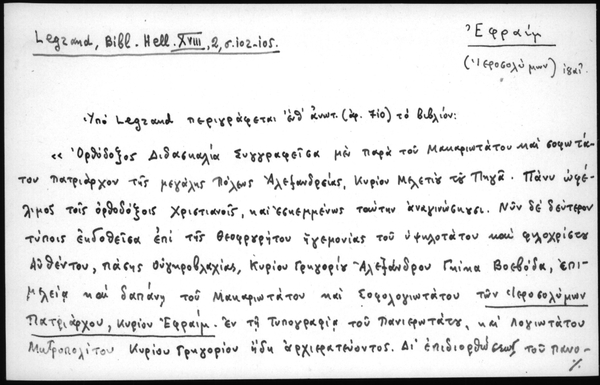 Legrand, Bibl. Hell. XVIII, 2, σ. 102-105.
Ἐφραίμ
(Ἱεροσολύμων)
Ὑπό Legrand περιγράφεται ἐνθ' ἀνωτ. (ἀρ. 710) τό βιβλίον:
«Ὀρθόδοξος Διδασκαλία Συγγραφεῖσα μέν παρά τοῦ Μακαριωτάτου καί σοφωτά-
του πατριάρχου τῆς μεγάλης Πόλεως Ἀλεξανδρείας, Κυρίου Μελετίου τοῦ Πηγᾶ. Πάνυ ὠφέ-
λιμος τοῖς ὀρθοδόξοις Χριστιανοῖς, καί ἐσκεμμένως ταύτην ἀναγινώσκουσι. Νῦν δέ δεύτερον
τύποις ἐκδοθεῖσα ἐπί τῆς θεοφρουρήτου ἡγεμονίας τοῦ ὑψηλοτάτου καί φιλοχρίστου
Αὐθέντου, πάσης Οὐγκροβλαχίας, Κυρίου Γρηγορίου Ἀλεξάνδρου Γκίκα Βοεβόδα, ἐπι-
μελείᾳ καί δαπάνῃ τοῦ Μακαριωτάτου καί Σοφολογιωτάτου τῶν Ἱεροσολύμων
Πατριάρχου, Κυρίου Ἐφραίμ. Ἐν τῇ Τυπογραφίᾳ τοῦ Πανιερωτάτου, καί Λογιωτάτου
Μητροπολίτου Κυρίου Γρηγορίου ἤδη ἀρχιερατεύοντος. Δι' ἐπιδιορθώσεως τοῦ πανο-
./.